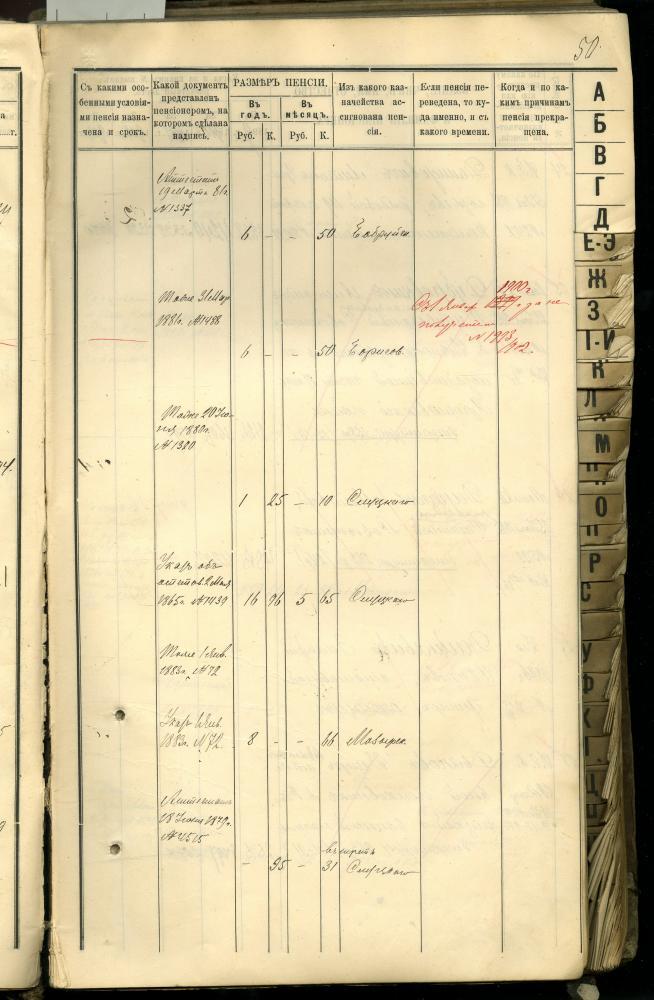 50.
Съ какими осо-
бенными условія-
ми пенсія назна-
чена и срокъ.
Какой документъ
представленъ
пенсіонеромъ, на
которомъ сдѣлана
надпись.
РАЗМѢРЪ ПЕНСІИ.
Въ
годъ.
Въ
мѣсяцъ.
Руб. К. Руб. К.
Изъ какого каз-
начейства ас-
сигнована пен-
сія.
Если пенсія пе-
реведена, то ку-
да именно, и съ
какого времени.
Когда и по ка-
кимъ причинамъ
пенсія прекра-
щена.
Аттестатъ
19 Марта 81г.
№ 1337
6 - - 50
Тоже 31 Мар
1881г. №1488
1900г.
№ 1993
6 - - 50 Борисов.
Тоже 20 Ію-
ня 1880г.
№ 1380
1 25 - 10 Слуцкаго
Указъ объ
1865г. №1439 16 96 5 65 Слуцкаго
Тоже 1 Янв.
1883г. №72
Указъ
1883г. №72. 8 - - 66 Мозырск.
Аттестатъ
18 Іюня 1879г.
№ 4515
- 95 - 31 Слуцкаго
А
Б
В
Г
Д
Е-Э
Ж
З
І-И
К
Л
М
Н
О
П
Р
С
У
Ф
Х
Ц